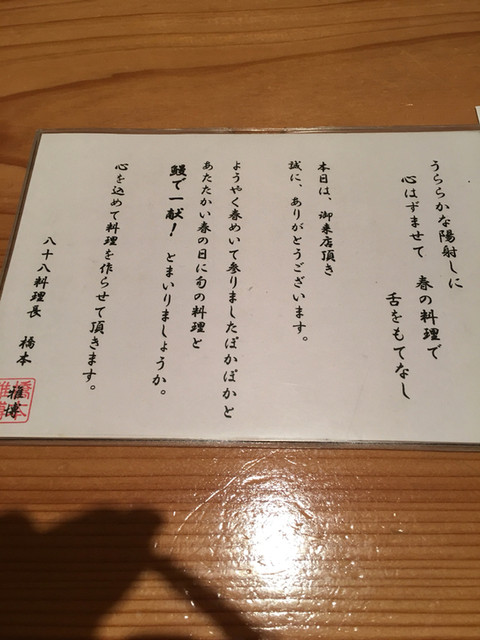 うららかな陽射しに
心はずませて 春の料理で
舌をもてなし
本日は、御来店頂き
誠に、ありがとうございます。
ようやく春めいて参りましたぽかぽかと
あたたかい春の日に旬の料理と
鰻で一献! とまいりましょうか。
心を込めて料理を作らせて頂きます。
八十八料理長 橋本 雅博